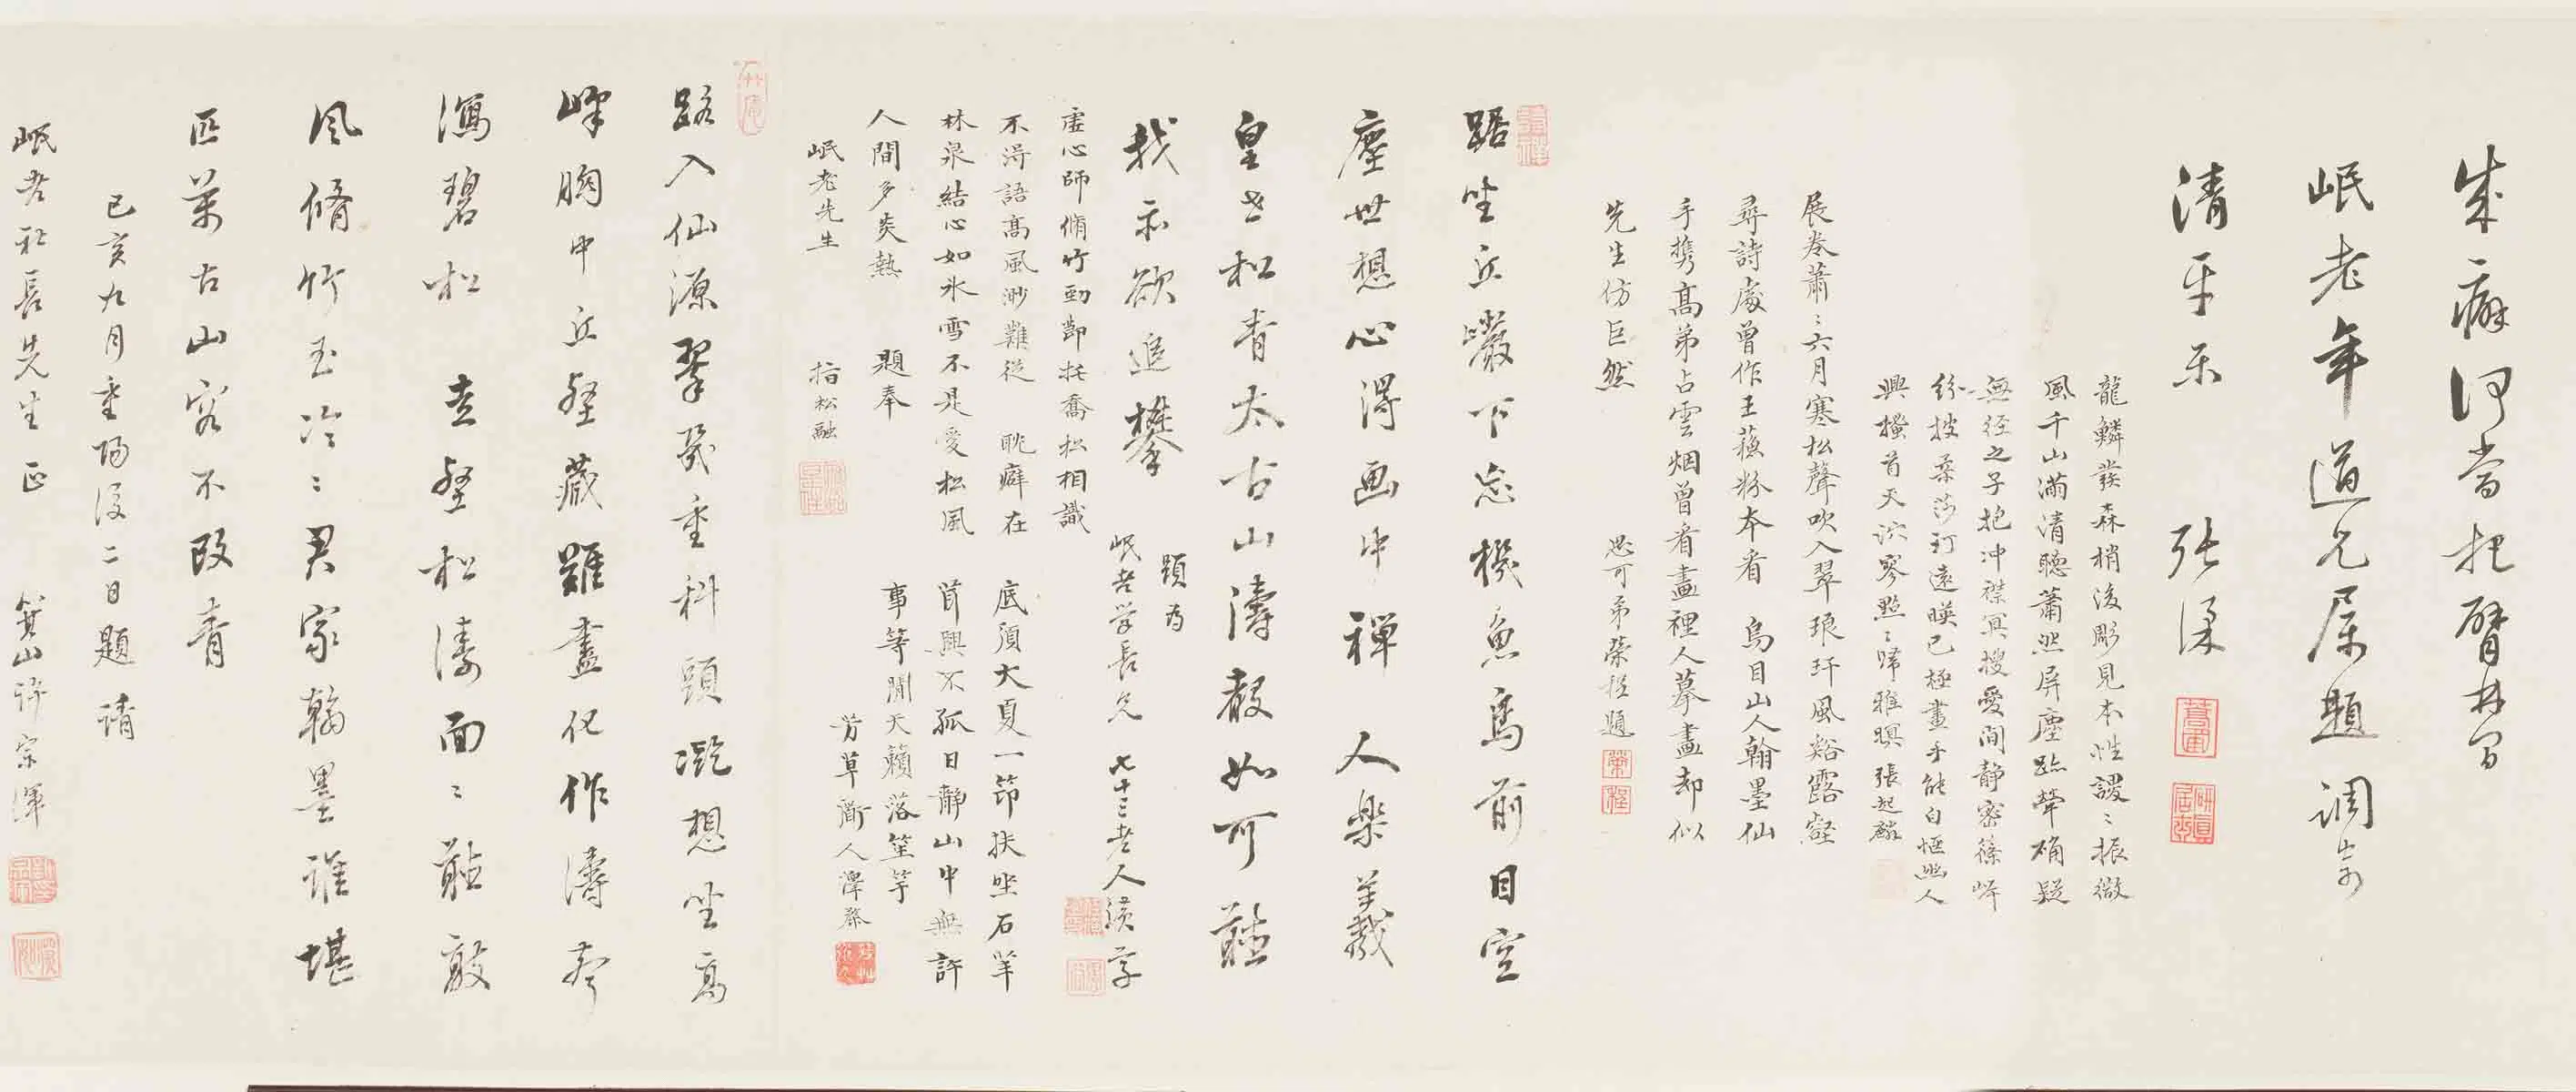 成癖何當把臂林間
岷老年道兄屬題調寄
清平樂　張
龍鱗叢森梢後彫見本性謖〻振微
風千山滿清聽蕭然屏塵跡犖确疑
無徑之子抱冲襟冥搜愛閒静密篠
紛披柔莎訂遠暎已極畫手能自愜幽人
興搔首天泬寥點〻歸雅暝　張起麟
展卷蕭〻六月寒松聲吹入翠琅玕風谿露壑
尋詩處曾作王蘇粉本看　烏目山人翰墨仙
手携高弟占雲烟曾看畫裡人摹畫却似
先生仿巨然　思可弟榮程題
踞坐丘巖下忘機魚鳥前目空
塵世想心得画中禪人樂羊義
皇上松青太古山濤聲如可聽
我亦欲追攀
題為
岷老学長兄　七十三老人
虚心師脩竹勁節托喬松相識
不淂語高風渺難從　眺癖在
林泉結心如氷雪不是愛松風
人間多炎熱　題奉
岷老先生　指松融
底須大夏一笻扶坐石羊
首興不孤日静山中無許
事等閒天籟落笙竽
芳草齋人
路入仙源翠幾重科頭凝想坐高
峰胸中丘壑藏難盡化作濤聲
瀉碧松　壴壑松濤面〻聽敲
風脩竹玉泠〻君家翰墨誰堪
匹萬古山容不改青
己亥九月重陽後二日題請
岷老社長先生正　箕山許宗渾